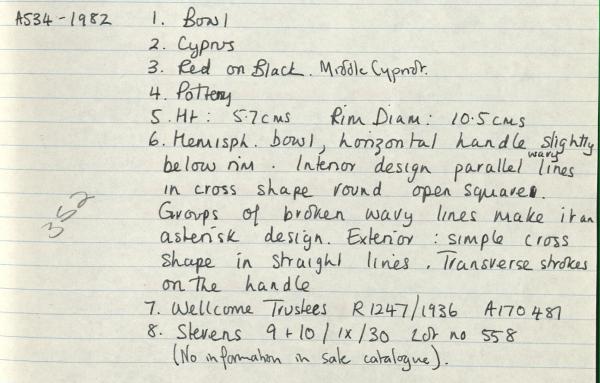 AS34-1982 1. Bowl
2. Cyprus
3. Red on Black. Middle Cypriot.
4. Pottery
5. Ht: 5.7cms Rim Diam: 10.5cms
6. Hemisph. bowl, horizontal handle slightly
below rim. Interior design parallel wavy lines
in cross shape round open square.
Groups of broken wavy lines make it an
asterisk design. Exterior: simple cross
shape in straight lines. Transverse strokes
on the handle
352
7. Wellcome Trustees R1247/1936 A170481
8. Stevens 9+10/ix/30 Lot no 558
(No information in sale catalogue).